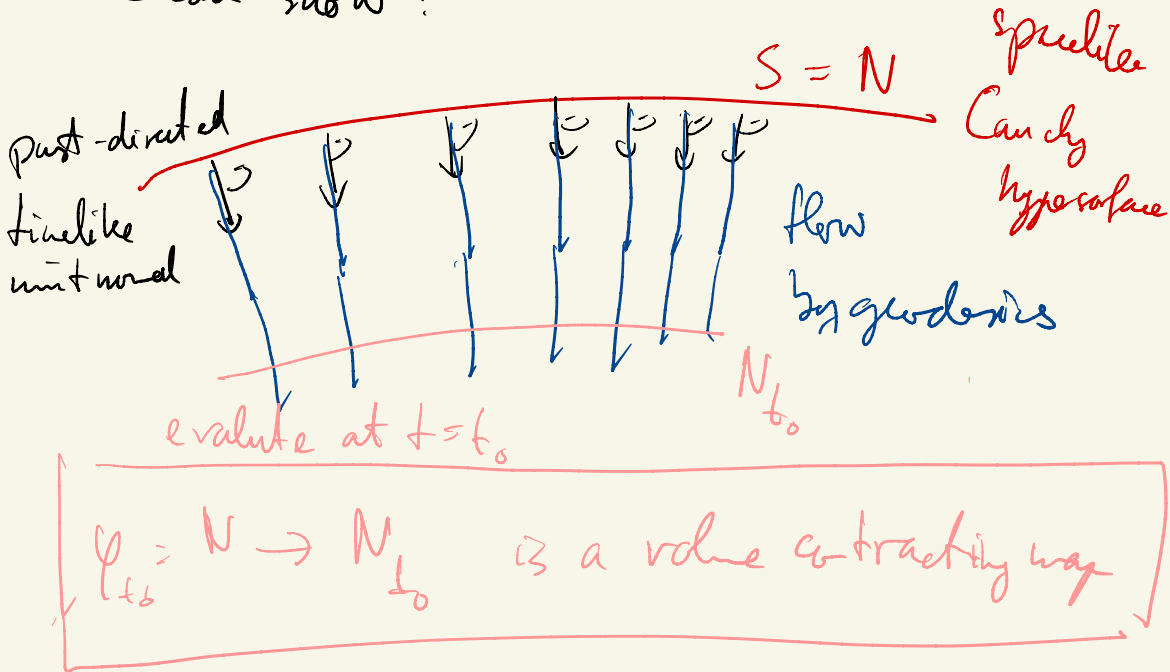 show?
S = N
spacelike
Cauchy
hypersurface
past-directed
timelike
unit normal
ν ν ν ν ν ν ν
flow
by geodesics
N_{t_0}
evalute at t=t_0
φ_{t_0}: N → N_{t_0} is a volume contracting map